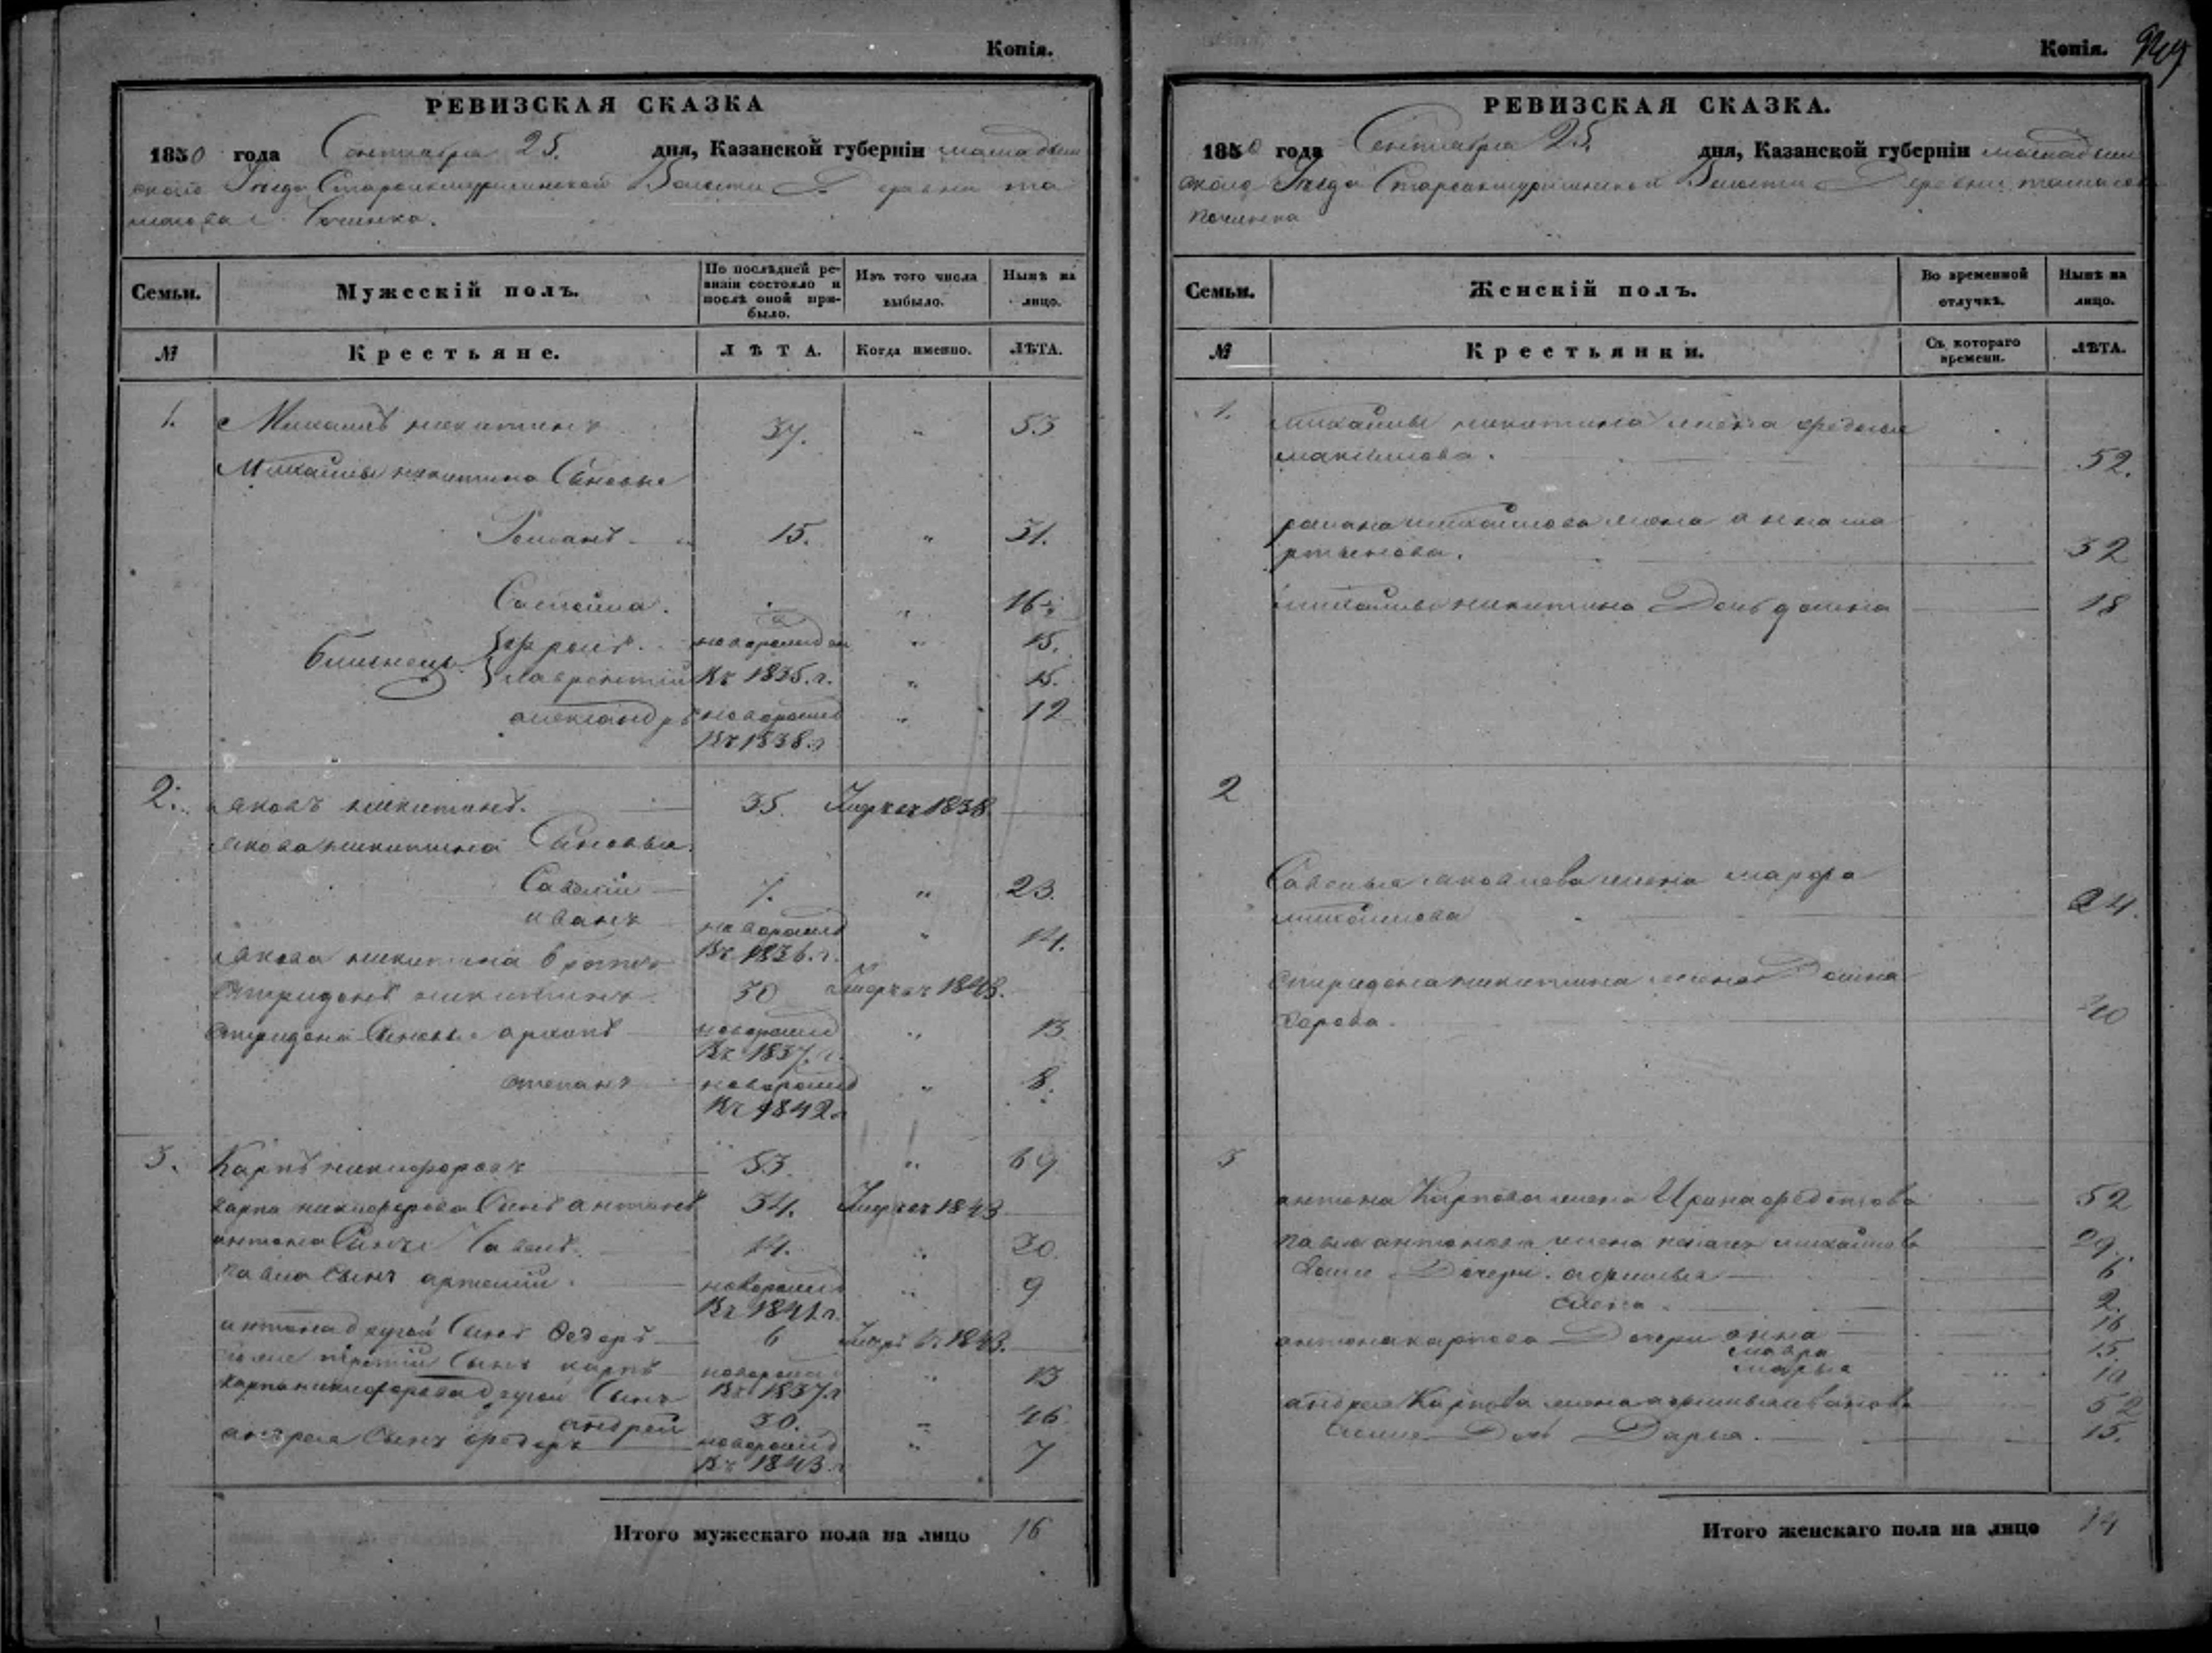 Копія.
РЕВИЗСКАЯ СКАЗКА
1850 года Сентября 25. дня, Казанской губерніи мамадыш
скаго Уезда Староикшурминской Волости Деревни
Починка.
Семьи. Мужескій полъ. По послѣдней ревизіи состояло и послѣ оной прибыло. Изъ того числа выбыло. Нынѣ на лицо.
№ Крестьяне. ЛѢТА. Когда именно. ЛѢТА.
1. Михаилъ никитинъ 37. " 53
Михаилы никитина Сыновья
Романъ 15. " 31.
" 16
близнецы Фролъ новорожден " 15.
лаврентій Въ 1835.г. " 15.
александръ новорожд " 12
Въ 1838.г
2. яковъ никитинъ. 35. Умре въ 1838
якова никитина Сыновья
Савелій 7. " 23.
иванъ новорожд " 14.
Въ 1836.г.
якова никитина братъ
спиридонъ никитинъ 30 Умре въ 1848.
спиридона Сыновья архипъ новорожд " 13.
Въ 1837.г.
степанъ новорожд " 8.
Въ 1842г
3. Карпъ никифоровъ 53. " 69
карпа никифорова Сынъ антонъ 34. Умре въ 1843
антона Сынъ Павелъ. 14. " 30.
павла Сынъ артемій. новорожд " 9
Въ 1841.г.
антона другой Сынъ Федоръ 6 Умръ в. 1843.
третій Сынъ карпъ новорожд " 13
карпа никифорова другой Сынъ Въ 1837.г
андрей 30. " 46.
андрея Сынъ федоръ новорожд " 7
Въ 1843.г
Итого мужескаго пола на лицо 16
Копія.
РЕВИЗСКАЯ СКАЗКА.
1850 года Сентября 25. дня, Казанской губерніи мамадыш
скаго Уезда Староикшурминской Волости Деревни
починка
Семьи. Женскій полъ. Во временной отлучкѣ. Нынѣ на лицо.
№ Крестьянки. Съ котораго времени. ЛѢТА.
1. михаилы никитина жена
максимова. 52.
романа михаилова жена анна ма
ртынова. 32
михаилы никитина Дочь домна 18
2
Савелья яковлева жена марфа
михаилова 24.
спиридона никитина жена
карпова. 40
3
антона Карпова жена Ирина федотова 52
павла антонова жена михаилова 29.
Дочери. афимья 6
2.
антона карпова Дочери анна 16
мавра 15
марья 10
андрея Карпова жена афимья иванова 52
Дочь Дарья. 15.
Итого женскаго пола на лицо 14